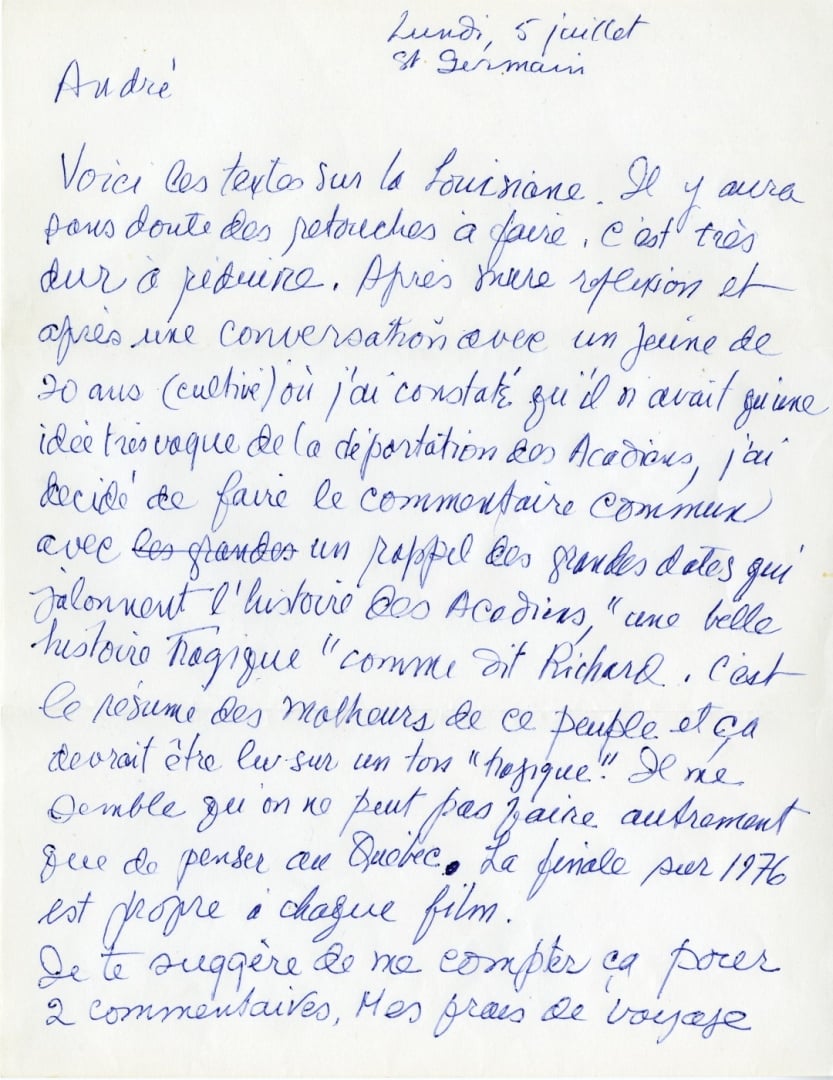 Lundi, 5 juillet
St Germain
André
Voici les textes sur la Louisiane. Il y aura
sans doute des retouches à faire. C'est très
dur à réduire. Après mure réflexion et
après une conversation avec un jeune de
20 ans (cultivé) où j'ai constaté qu'il n'avait qu'une
idée très vague de la déportation des Acadiens, j'ai
décidé de faire le commentaire commun
avec les grandes un rappel des grandes dates qui
jalonnent l'histoire des Acadiens, "une belle
histoire tragique" comme dit Richard. C'est
le résumé des malheurs de ce peuple et ça
devrait être lu sur un ton "tragique". Il me
semble qu'on ne peut pas faire autrement
que de penser au Québec. La finale sur 1976
est propre à chaque film.
Je te suggère de me compter ça pour
2 commentaires. Mes frais de voyage